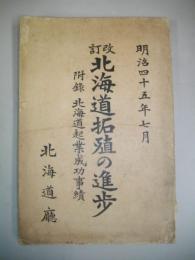 明治四十五年七月
改訂 北海道拓殖の進歩
附錄 北海道起業成功事績
北海道廳